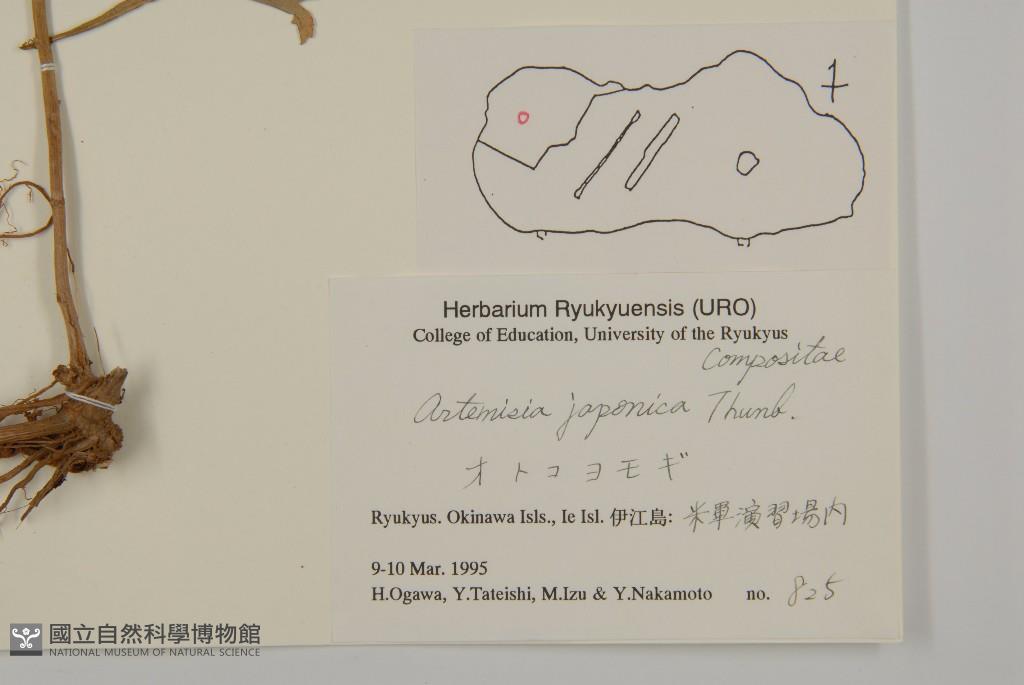 Herbarium Ryukyuensis (URO)
College of Education, University of the Ryukyus
Compositae
Artemisia japonica Thunb.
オトコヨモギ
Ryukyus. Okinawa Isls., Ie Isl. 伊江島: 米軍演習場内
9-10 Mar. 1995
H.Ogawa, Y.Tateishi, M.Izu & Y.Nakamoto no. 825
國立自然科學博物館
NATIONAL MUSEUM OF NATURAL SCIENCE